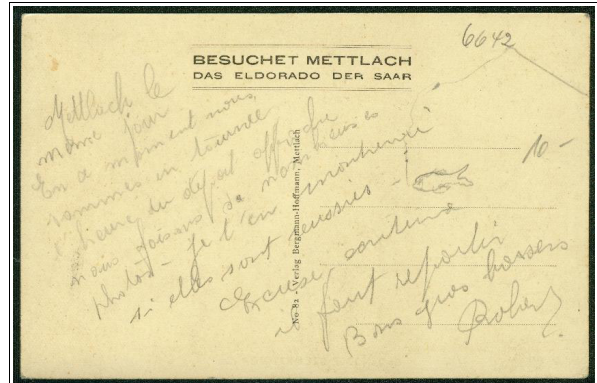 6642
BESUCHET METTLACH
DAS ELDORADO DER SAAR
Mettlach le
même jour
En ce moment nous
sommes en tournée
l'heure du départ
nous faisons de nombreuses
photos - je t'en montrerai
si elles sont réussies -
10-
Excuse
il faut repartir
Bons gros baisers
Robert
No 82 - Verlag Bergmann-Hoffmann, Mettlach